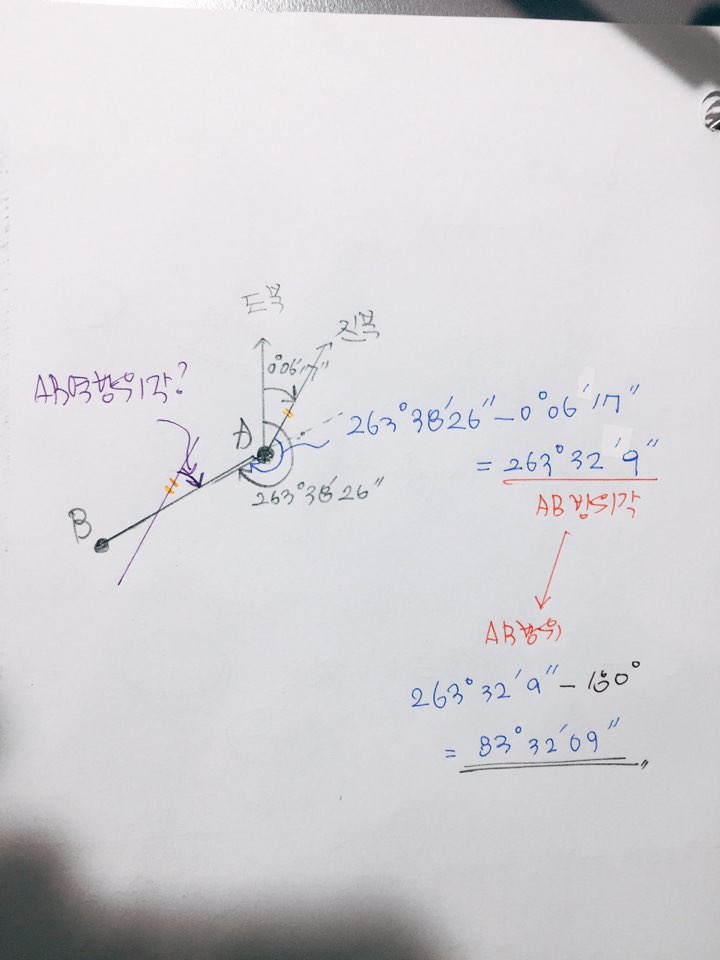 도북
진북
0°06'17"
AB역방위각?
A
263°38'26" - 0°06'17"
= 263°32'9"
263°38'26"
AB방위각
B
AB방위
263°32'9" - 180°
= 83°32'09"